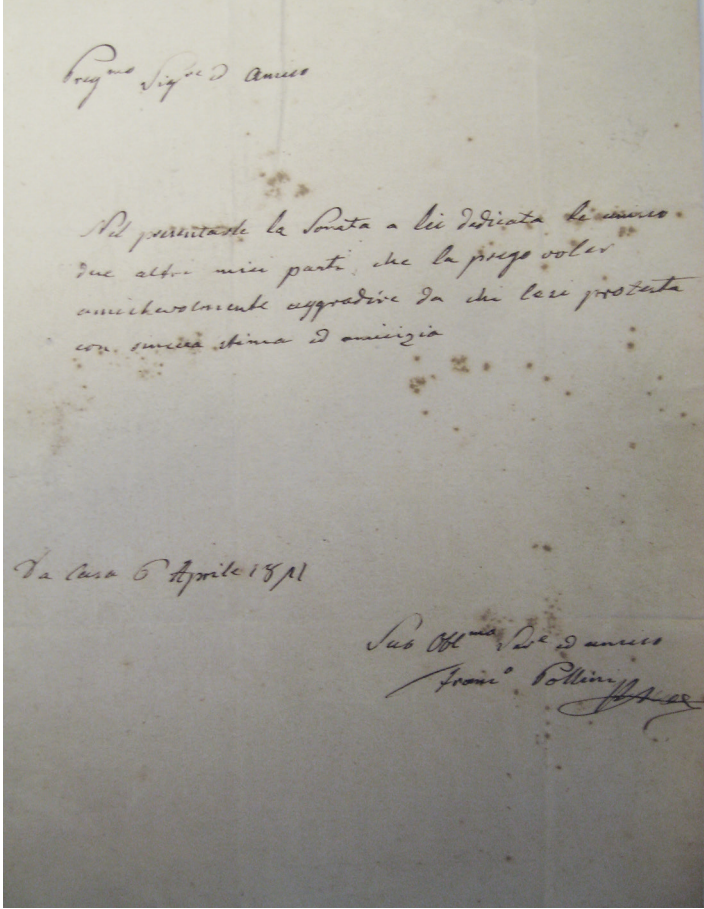 Preg.mo Sig.re ed Amico
Nel presentarle la Sonata a lei dedicata le unisco
due altri miei parti, che la prego voler
amichevolmente aggradire da chi lesi protesta
con sincera stima ed amicizia
Da Casa 6 Aprile 1811
Suo Obl.mo Ser.e ed amico
Franc.o Pollini